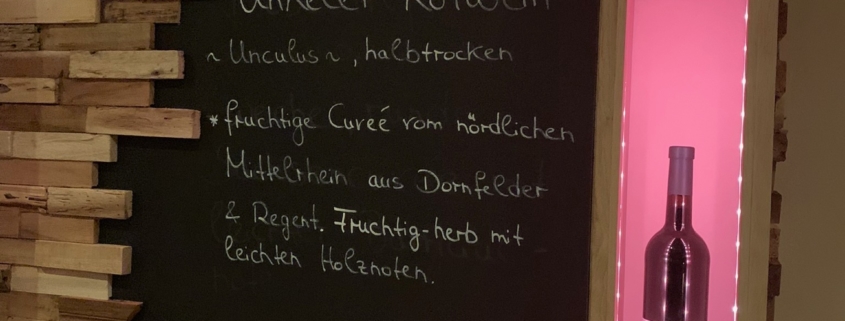 Unkeler Rotwein
~ Unculus ~, halbtrocken
* fruchtige Cureé vom nördlichen
Mittelrhein aus Dornfelder
& Regent. Fruchtig-herb mit
leichten Holznoten.